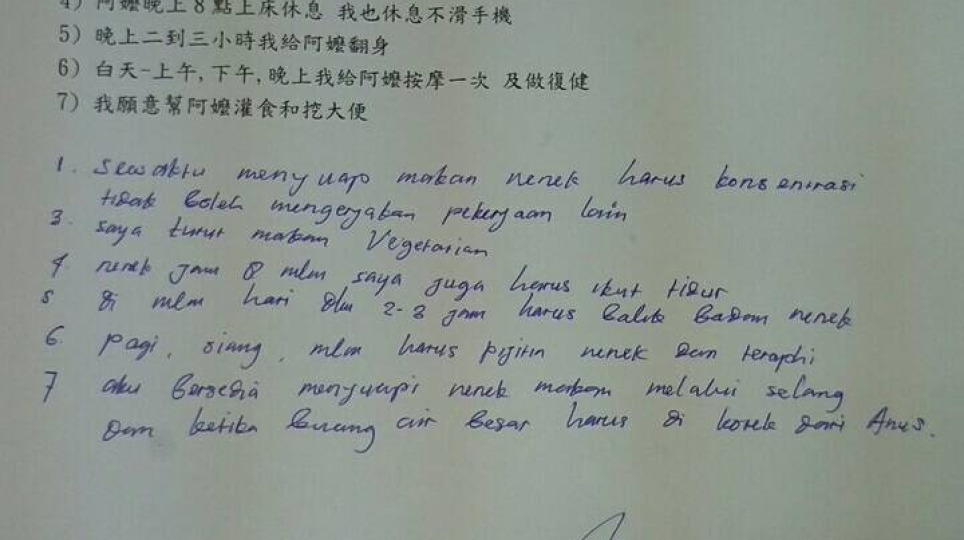 4) 阿嬤晚上8點上床休息 我也休息不滑手機
5) 晚上二到三小時我給阿嬤翻身
6) 白天-上午,下午,晚上我給阿嬤按摩一次 及做復健
7) 我願意幫阿嬤灌食和挖大便
1. sewaktu menyuap makan nenek harus konsentrasi
tidak boleh mengerjakan pekerjaan lain
3. saya turut makan Vegetarian
4. nenek jam 8 mlm saya juga harus ikut tidur
5 di mlm hari dlm 2-3 jam harus balik badan nenek
6. pagi, siang, mlm harus pijitin nenek dan teraphi
7 aku bersedia menyuapi nenek makan melalui selang
dan ketika buang air besar harus di korek dari Anus.